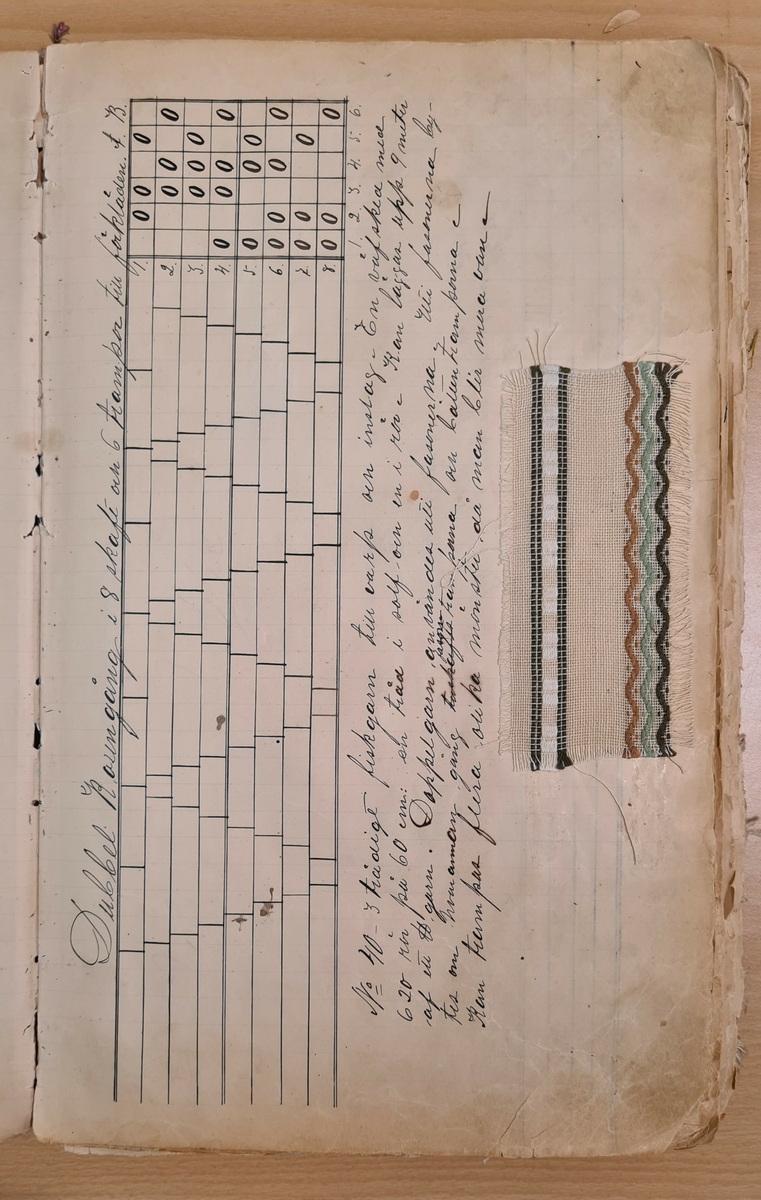 Dubbel Rosengång i 8 skaft och 6 trampor till förkläden. A. B.
1. 0 0 0
2. 0 0 0
3. 0 0
4. 0 0 0 0
5. 0 0 0
6. 0 0 0 0
7. 0 0 0
8. 0 0 0
1 2 3. 4. 5. 6.
No 40-3 trådigt fiskgarn till varp och inslag. En väfsked med
620 rör på 60 cm: en tråd i solf och en i rör. Kan läggas upp 9 meter
af ett garn. Doppelgarn användes till fasonerna. Till fasonerna by-
tes om hvarannan gång och botten tramporna
Kan trampas flera olika mönster då man blir mera van